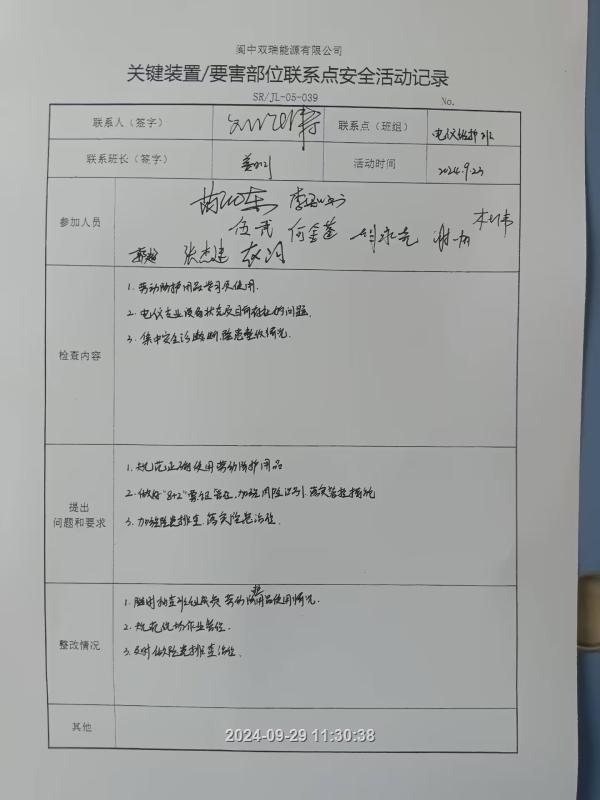 阆中双瑞能源有限公司
关键装置/要害部位联系点安全活动记录
SR/JL-05-039
No.
联系人（签字）
联系点（班组） 电仪维护班
联系班长（签字）
活动时间 2024.9.23
参加人员
何金莲
张杰建
检查内容
1. 劳动防护用品学习及使用.
2. 电仪专业设备状态及目前存在的问题.
3. 集中安全诊断, 隐患整改情况.
提出
问题和要求
1. 规范正确使用劳动防护用品
2. 做好“8+2”票证管控, 加强风险识别, 落实管控措施
3. 加强隐患排查, 落实隐患治理.
整改情况
1. 随时抽查班组成员劳动防护用品使用情况.
2. 规范现场作业管控.
3. 及时做隐患排查治理.
其他
2024-09-29 11:30:38